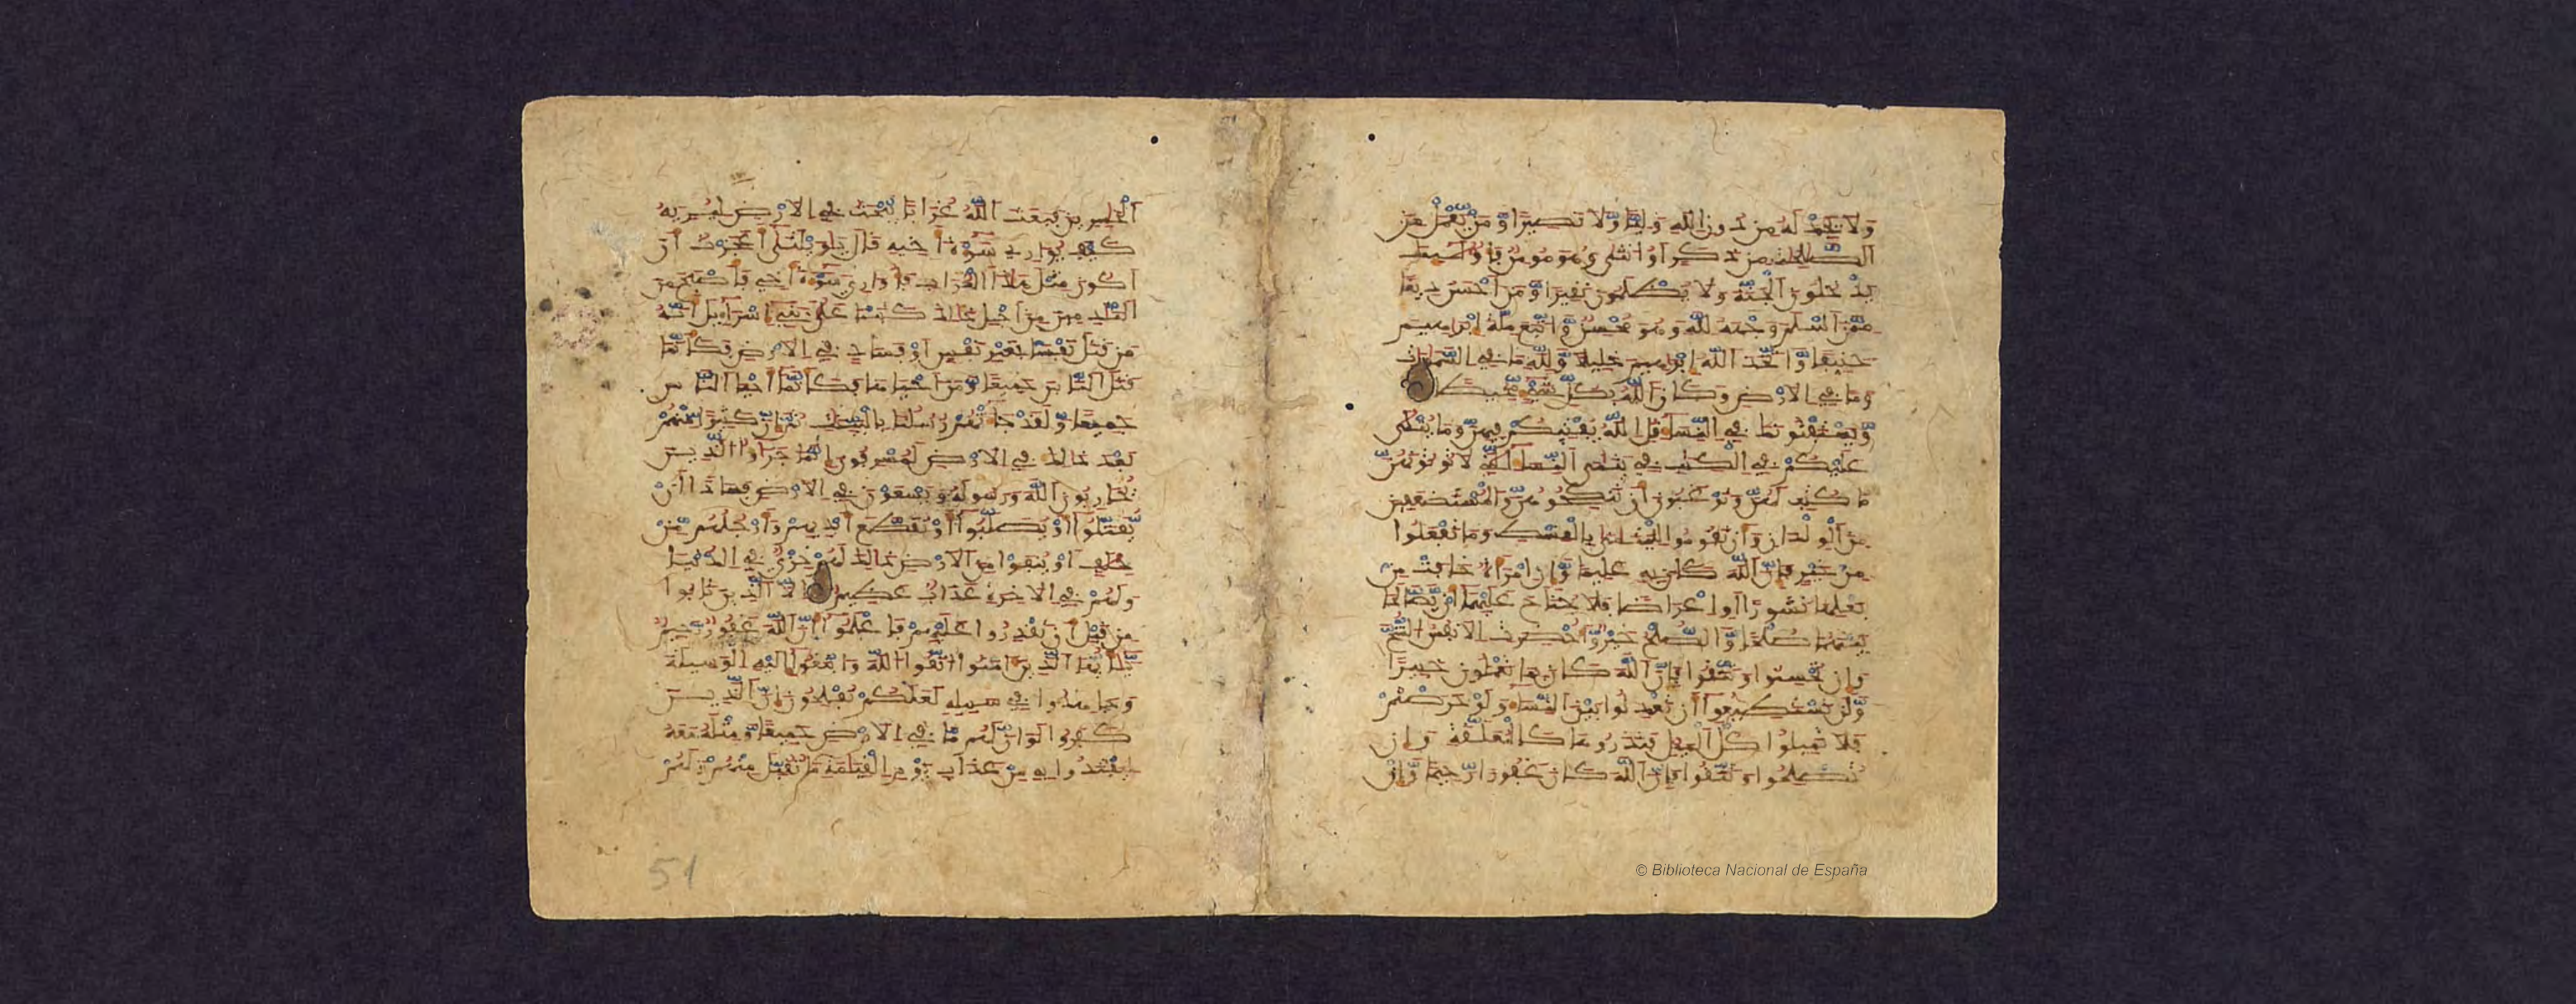 وَلَا يَجِدْ لَهُ مِن دُونِ اللَّهِ وَلِيًّا وَّلَا نَصِيرًا وَّمَنْ يَّعْمَلْ مِنَ
الصَّلِحَتِ مِن ذَكَرٍ اَوُ انثَى وَهُوَ مُومِنٌ فَأُولَئِكَ
يَدْخُلُونَ الْجَنَّةَ وَلَا يُظْلَمُونَ نَقِيرًا وَّمَنَ اَحْسَنُ دِينًا
مِّمَّنَ اَسْلَمَ وَجْهَهُ لِلَّهِ وَهُوَ مُحْسِنٌ وَّاتَّبَعَ مِلَّةَ إِبْرَاهِيمَ
حَنِيفًا وَّاتَّخَذَ اللَّهُ إِبْرَاهِيمَ خَلِيلًا وَّلِلَّهِ مَا فِي السَّمَوَتِ
وَمَا فِي الَارْضِ وَكَانَ اللَّهُ بِكُلِّ شَيْءٍ مُّحِيطًا
وَّيَسْتَفْتُونَكَ فِي النِّسَاءِ قُلِ اللَّهُ يُفْتِيكُمْ فِيهِنَّ وَمَا يُتْلَى
عَلَيْكُمْ فِي الْكِتَبِ فِي يَتَمَى النِّسَاءِ الَّتِي لَا تُوتُونَهُنَّ
مَا كُتِبَ لَهُنَّ وَتَرْغَبُونَ أَن تَنكِحُوهُنَّ وَالْمُسْتَضْعَفِينَ
مِنَ الْوِلْدَانِ وَأَن تَقُومُوا لِلْيَتَمَى بِالْقِسْطِ وَمَا تَفْعَلُوا
مِنْ خَيْرٍ فَإِنَّ اللَّهَ كَانَ بِهِ عَلِيمًا وَّإِنِ امْرَأَةٌ خَافَتْ مِن
بَعْلِهَا نُشُوزًا اَوِ اعْرَاضًا فَلَا جُنَاحَ عَلَيْهِمَا أَنْ يَّصَّالَحَا
بَيْنَهُمَا صُلْحًا وَّالصُّلْحُ خَيْرٌ وَّأُحْضِرَتِ الَانفُسُ الشُّحَّ
وَإِن تُحْسِنُوا وَتَتَّقُوا فَإِنَّ اللَّهَ كَانَ بِمَا تَعْمَلُونَ خَبِيرًا
وَّلَن تَسْتَطِيعُوا أَن تَعْدِلُوا بَيْنَ النِّسَاءِ وَلَوْ حَرَصْتُمْ
فَلَا تَمِيلُوا كُلَّ الْمَيْلِ فَتَذَرُوهَا كَالْمُعَلَّقَةِ وَإِن
تُصْلِحُوا وَتَتَّقُوا فَإِنَّ اللَّهَ كَانَ غَفُورًا رَّحِيمًا وَّإِنْ
الْخَسِرِينَ فَبَعَثَ اللَّهُ غُرَابًا يَبْحَثُ فِي الَارْضِ لِيُرِيَهُ
كَيْفَ يُوَارِي سَوْءَةَ أَخِيهِ قَالَ يَاوَيْلَتَى أَعَجَزْتُ أَنَ
اَكُونَ مِثْلَ هَذَا الْغُرَابِ فَأُوَارِيَ سَوْءَةَ أَخِي فَأَصْبَحَ مِنَ
النَّدِمِينَ مِنَ اَجْلِ ذَلِكَ كَتَبْنَا عَلَى بَنِي إِسْرَاءِيلَ أَنَّهُ
مَن قَتَلَ نَفْسًا بِغَيْرِ نَفْسٍ اَوْ فَسَادٍ فِي الَارْضِ فَكَأَنَّمَا
قَتَلَ النَّاسَ جَمِيعًا وَّمَنَ اَحْيَاهَا فَكَأَنَّمَا أَحْيَا النَّاسَ
جَمِيعًا وَّلَقَدْ جَاءَتْهُمْ رُسُلُنَا بِالْبَيِّنَتِ ثُمَّ إِنَّ كَثِيرًا مِّنْهُمْ
بَعْدَ ذَلِكَ فِي الَارْضِ لَمُسْرِفُونَ إِنَّمَا جَزَاؤُا الَّذِينَ
يُحَارِبُونَ اللَّهَ وَرَسُولَهُ وَيَسْعَوْنَ فِي الَارْضِ فَسَادًا اَنْ
يُّقَتَّلُوا أَوْ يُصَلَّبُوا أَوْ تُقَطَّعَ أَيْدِيهِمْ وَأَرْجُلُهُم مِّنْ
خِلَفٍ اَوْ يُنفَوْا مِنَ الَارْضِ ذَلِكَ لَهُمْ خِزْيٌ فِي الدُّنْيَا
وَلَهُمْ فِي الَاخِرَةِ عَذَابٌ عَظِيمٌ اِلَّا الَّذِينَ تَابُوا
مِن قَبْلِ أَن تَقْدِرُوا عَلَيْهِمْ فَاعْلَمُوا أَنَّ اللَّهَ غَفُورٌ رَّحِيمٌ
يَّأَيُّهَا الَّذِينَ ءَامَنُوا اتَّقُوا اللَّهَ وَابْتَغُوا إِلَيْهِ الْوَسِيلَةَ
وَجَاهِدُوا فِي سَبِيلِهِ لَعَلَّكُمْ تُفْلِحُونَ إِنَّ الَّذِينَ
كَفَرُوا لَوَ اَنَّ لَهُم مَّا فِي الَارْضِ جَمِيعًا وَّمِثْلَهُ مَعَهُ
لِيَفْتَدُوا بِهِ مِنْ عَذَابِ يَوْمِ الْقِيَمَةِ مَا تُقُبِّلَ مِنْهُمْ وَلَهُمْ
51
© Biblioteca Nacional de España